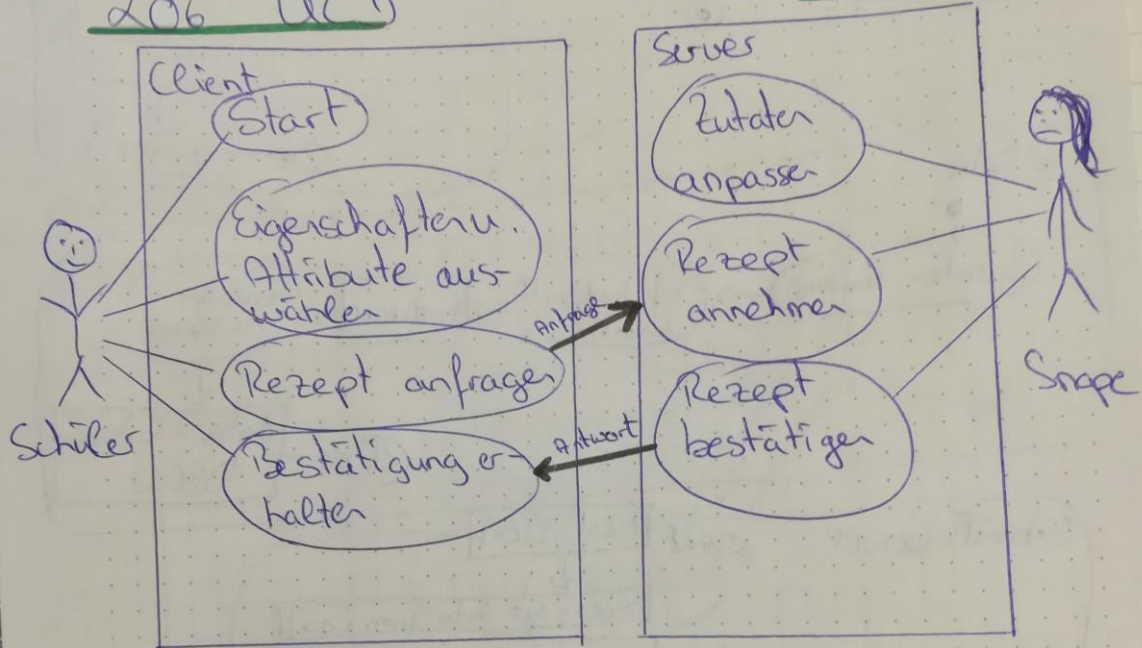 206 UCD
Client
Start
Eigenschaften u.
Attribute aus-
wählen
Rezept anfragen
Bestätigung er-
halten
Schüler
Anfrage
Antwort
Server
Zutaten
anpassen
Rezept
annehmen
Rezept
bestätigen
Snape